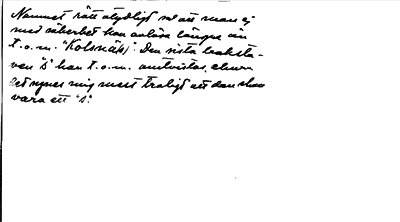 Namnet rätt otydligt så att man ej
med säkerhet kan avläsa längre än
t.o.m. "Kolsnäs". Den sista boksta-
ven "s" kan t.o.m. omtvistas, ehuru
det synes mig mest troligt att den skall
vara ett "s".